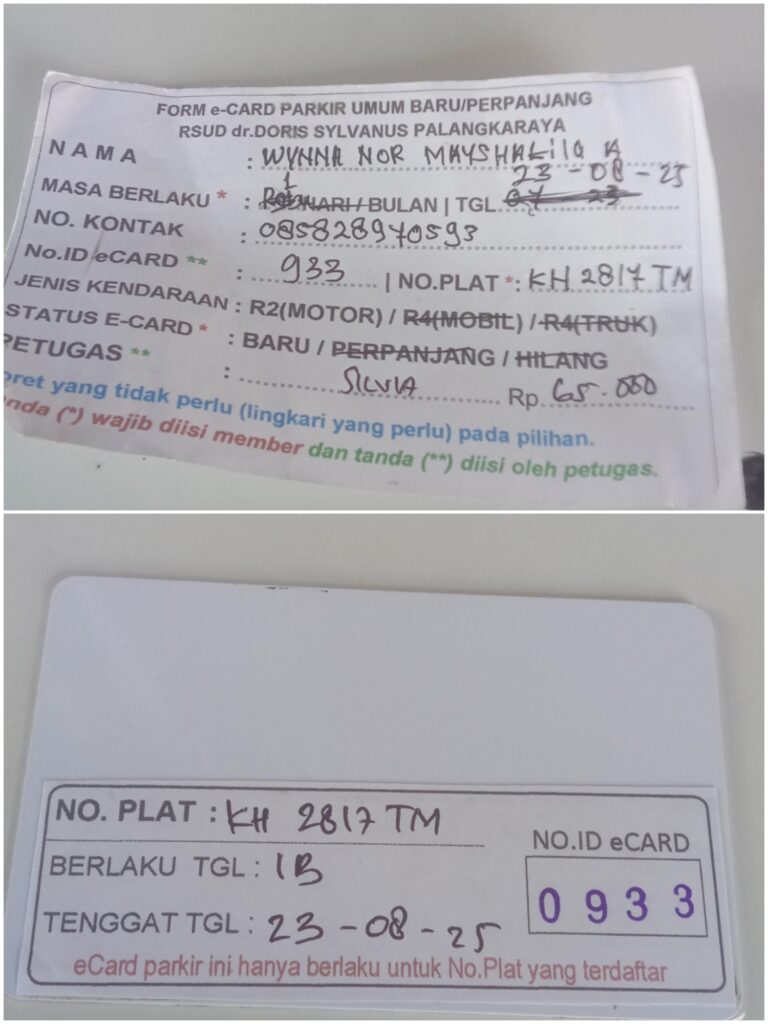 FORM e-CARD PARKIR UMUM BARU/PERPANJANG
RSUD dr.DORIS SYLVANUS PALANGKARAYA
NAMA : WYNNA NOR MAYSHALILA A
23 - 08 - 25
MASA BERLAKU * : 1 HARI / BULAN | TGL 07 23
NO. KONTAK : 085828970593
No.ID eCARD ** : 933 | NO.PLAT *: KH 2817 TM
JENIS KENDARAAN : R2(MOTOR) / R4(MOBIL) / R4(TRUK)
STATUS E-CARD * : BARU / PERPANJANG / HILANG
PETUGAS ** : SILVIA Rp. 65.000
oret yang tidak perlu (lingkari yang perlu) pada pilihan.
anda (*) wajib diisi member dan tanda (**) diisi oleh petugas.
NO. PLAT : KH 2817 TM
BERLAKU TGL : 1B
NO.ID eCARD
0933
TENGGAT TGL : 23 - 08 - 25
eCard parkir ini hanya berlaku untuk No.Plat yang terdaftar